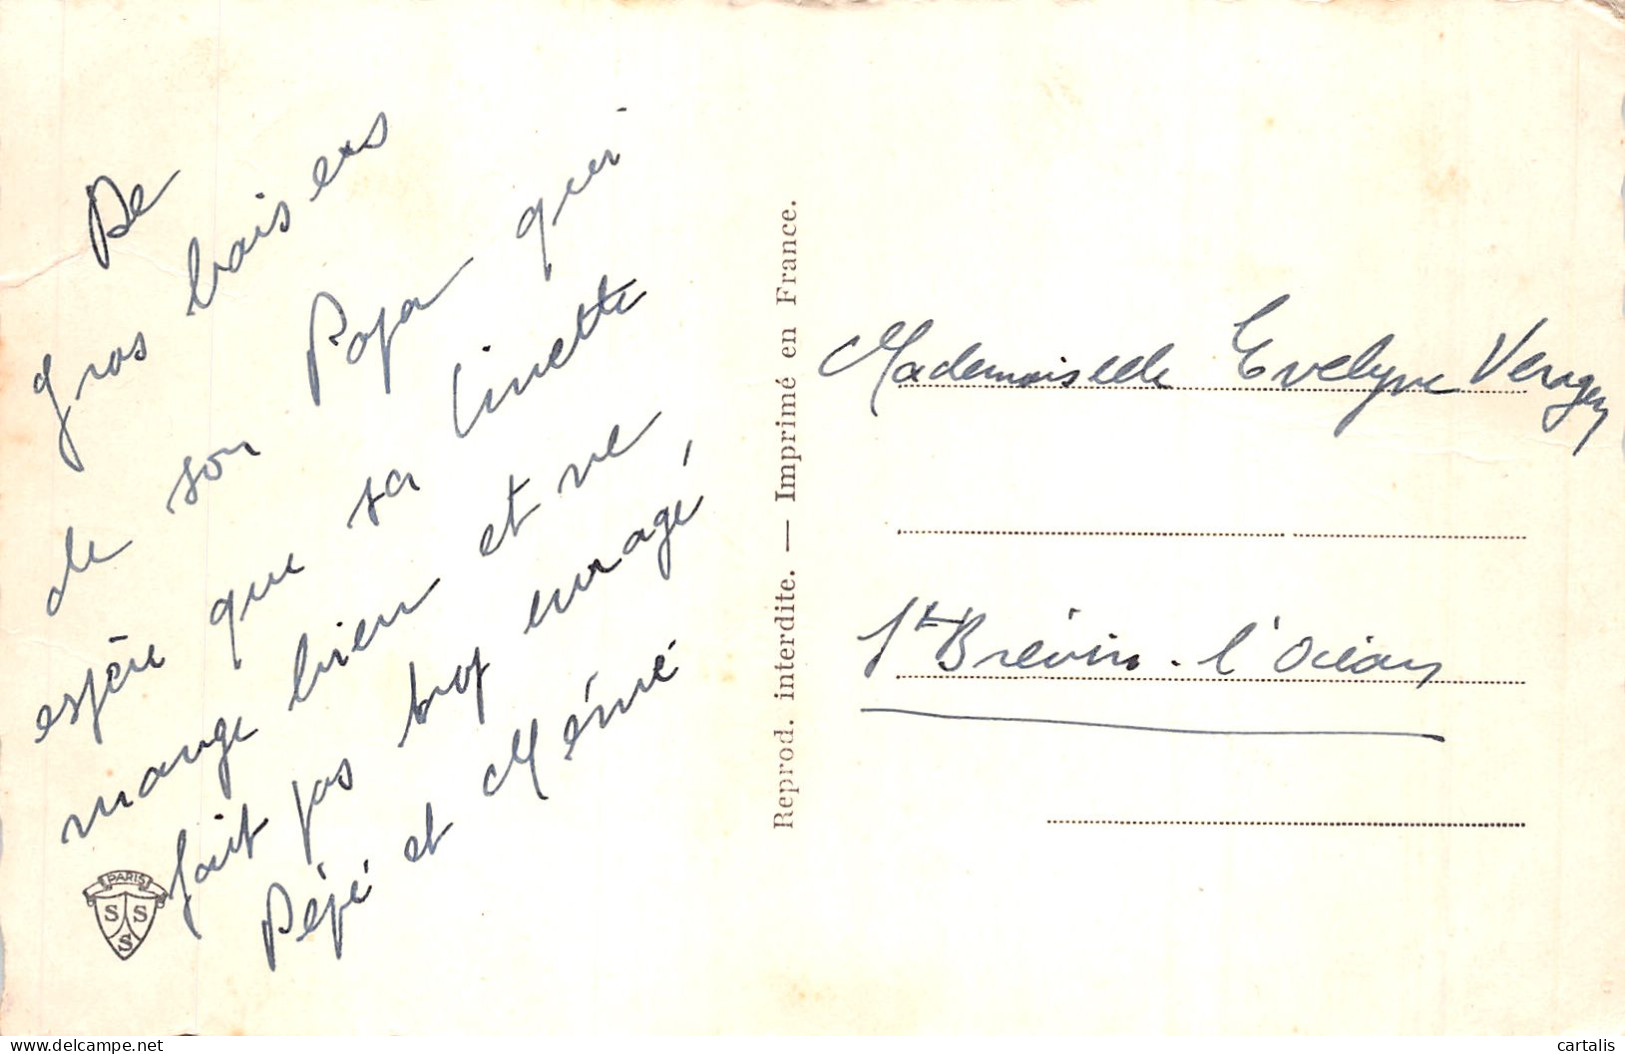 De
gros baisers
de son Papa qui
espère que sa Linette
mange bien et ne
fait pas trop enragé,
Pépé et Mémé
PARIS
S S
S
Reprod. interdite. — Imprimé en France.
Mademoiselle Evelyne
St Brévin. l'Océan
cartalis